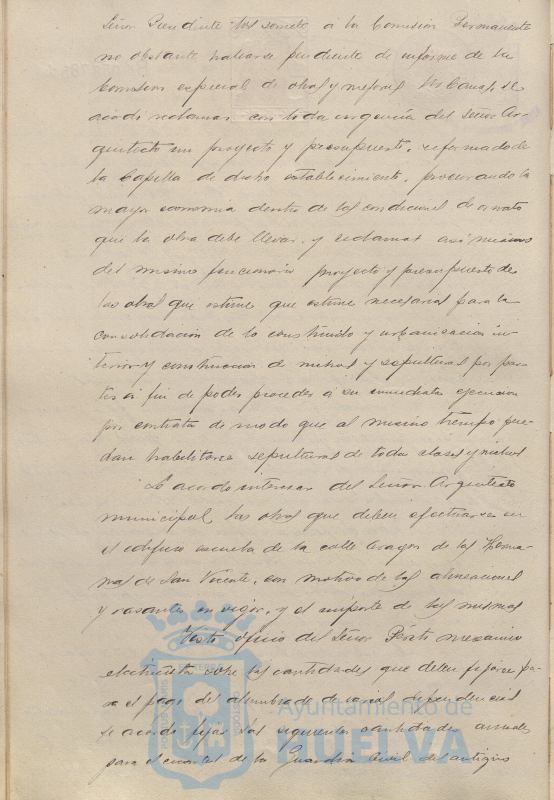 Señor Presidente los somete á la Comision Permanente
no obstante hallarse pendiente de informe de la
Comision especial de obras y mejoras
acordó reclamar con toda urgencia del Señor Ar-
quitecto un proyecto y presupuesto, reformado de
la Capilla de dicho establecimiento, procurando la
mayor economia dentro de las condiciones de ornato
que la obra debe llevar, y reclamar asi mismo
del mismo funcionario proyecto y presupuesto de
las obras que estime que estime necesarias para la
consolidación de lo construido y urbanizacion in-
terior y construccion de nichos y sepulturas por par-
tes á fin de poder proceder á su inmediata ejecucion
por contrata de modo que al mismo tiempo pue-
dan habilitarse sepulturas de todas clases y nichos
Se acordo interesar del Señor Arquitecto
municipal, las obras que deben efectuarse en
el edificio escuela de la calle Aragon de las Herma-
nas de San Vicente, con motivo de las alineaciones
y rasantes en vigor, y el importe de las mismas
Visto oficio del Señor Perito mecanico
electricista sobre las cantidades que deben fijarse pa-
ra el pago del alumbrado de varias dependencias
se acordó fijar las siguientes cantidades anuales
para el cuartel de la Guardia Civil del antiguo
Ayuntamiento de
HUELVA